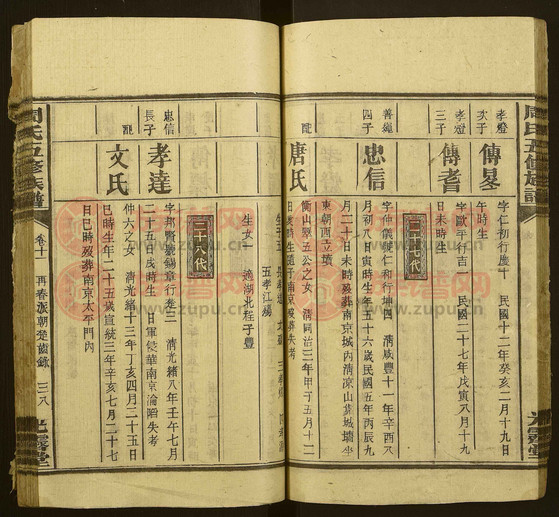 周氏五修族譜
光霽堂
孝燈
次子
傳晷
字仁初行慶十 民國十二年癸亥二月十九日
午時生
孝燈
三子
傳耆
字歐平行吉一 民國二十七年戊寅八月十九
日未時生
二十七代
善繩
四子
忠信
字仲儀號仁和行坤四 清咸豐十一年辛酉八
月初八日寅時生年五十六歲民國五年丙辰九
月二十日未時歿葬南京城內清凉山靠城墻坐
東朝西立墳
配
唐氏
衡山翠五公之女 清同治三年甲子五月十二
五孝江殤
生女一 適湖北程子豐
二十八代
忠信
長子
孝達
字邦賢號錫章行孝三 清光緒八年壬午七月
二十五日戌時生 日軍侵華南京淪陷失考
配
文氏
仲六之女 清光緒十三年丁亥四月二十五日
巳時生年二十五歲宣統三年辛亥七月二十七
日巳時歿葬南京太平門內
周氏五修族譜
卷十一
再春派朝楚齒錄
三八
光霽堂
www.zupu.cn
www.zupu.cn